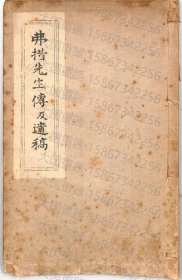 弗措先生傳及遺稿